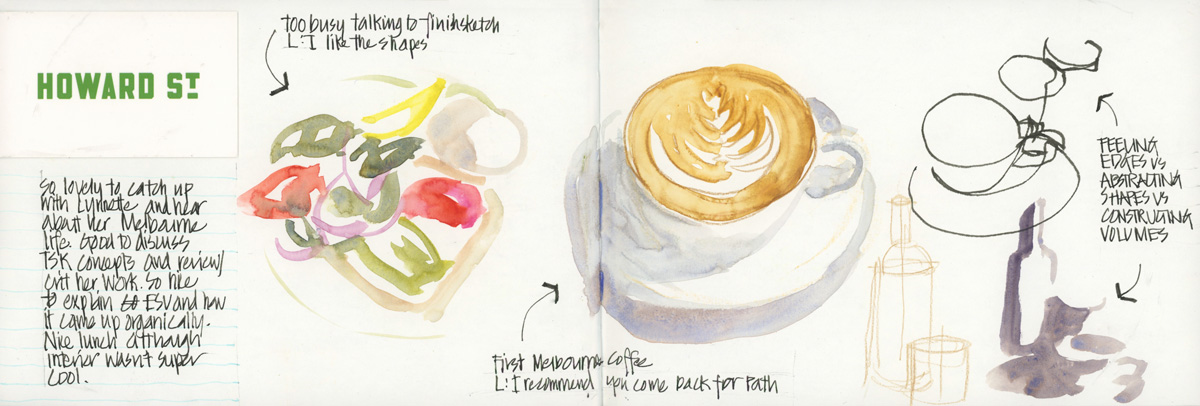 HOWARD ST
So lovely to catch up
with Lynette and hear
about her Melbourne
life. Good to discuss
TSK concepts and review/
crit her work. So nice
to explain ESV and how
it came up organically.
Nice lunch although
interior wasn't super
cool.
too busy talking to finish sketch
L: I like the shapes
First Melbourne Coffee
L: I recommend you come back for Path
FEELING
EDGES VS
ABSTRACTING
SHAPES VS
CONSTRUCTING
VOLUMES